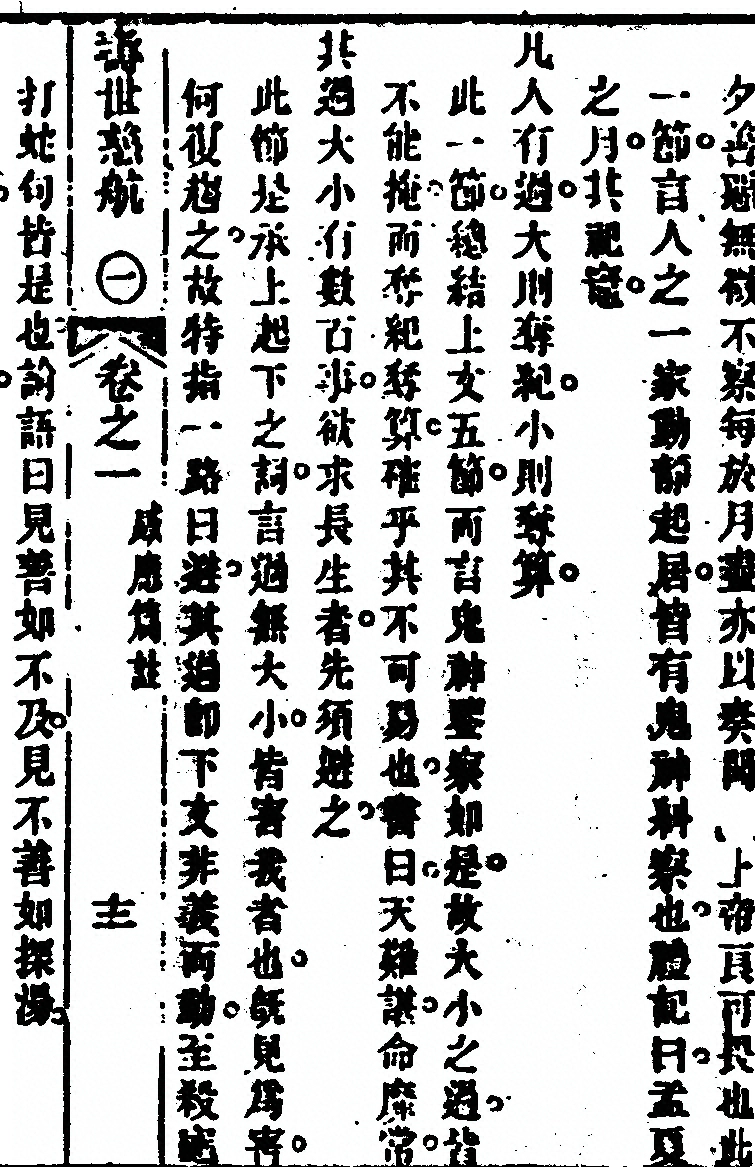 夕善惡無微不察每於月盡亦以奏聞上帝良可畏也此
一節言人之一家動靜起居皆有鬼神糾察也禮記曰孟夏
之月其祀竈
凡人有過大則奪紀小則奪算
此一節總結上文五節而言鬼神鑒察如是故大小之過皆
不能掩而奪紀奪算確乎其不可易也書曰天難諶命靡常
其過大小有數百事欲求長生者先須避之
此節是承上起下之詞言過無大小皆害我者也既見為害
何復趨之故特指一路曰避其過即下文非義而動至殺
誨世慈航 ㊀ 卷之一 感應篇註 十一
打蛇句皆是也論語曰見善如不及見不善如探湯